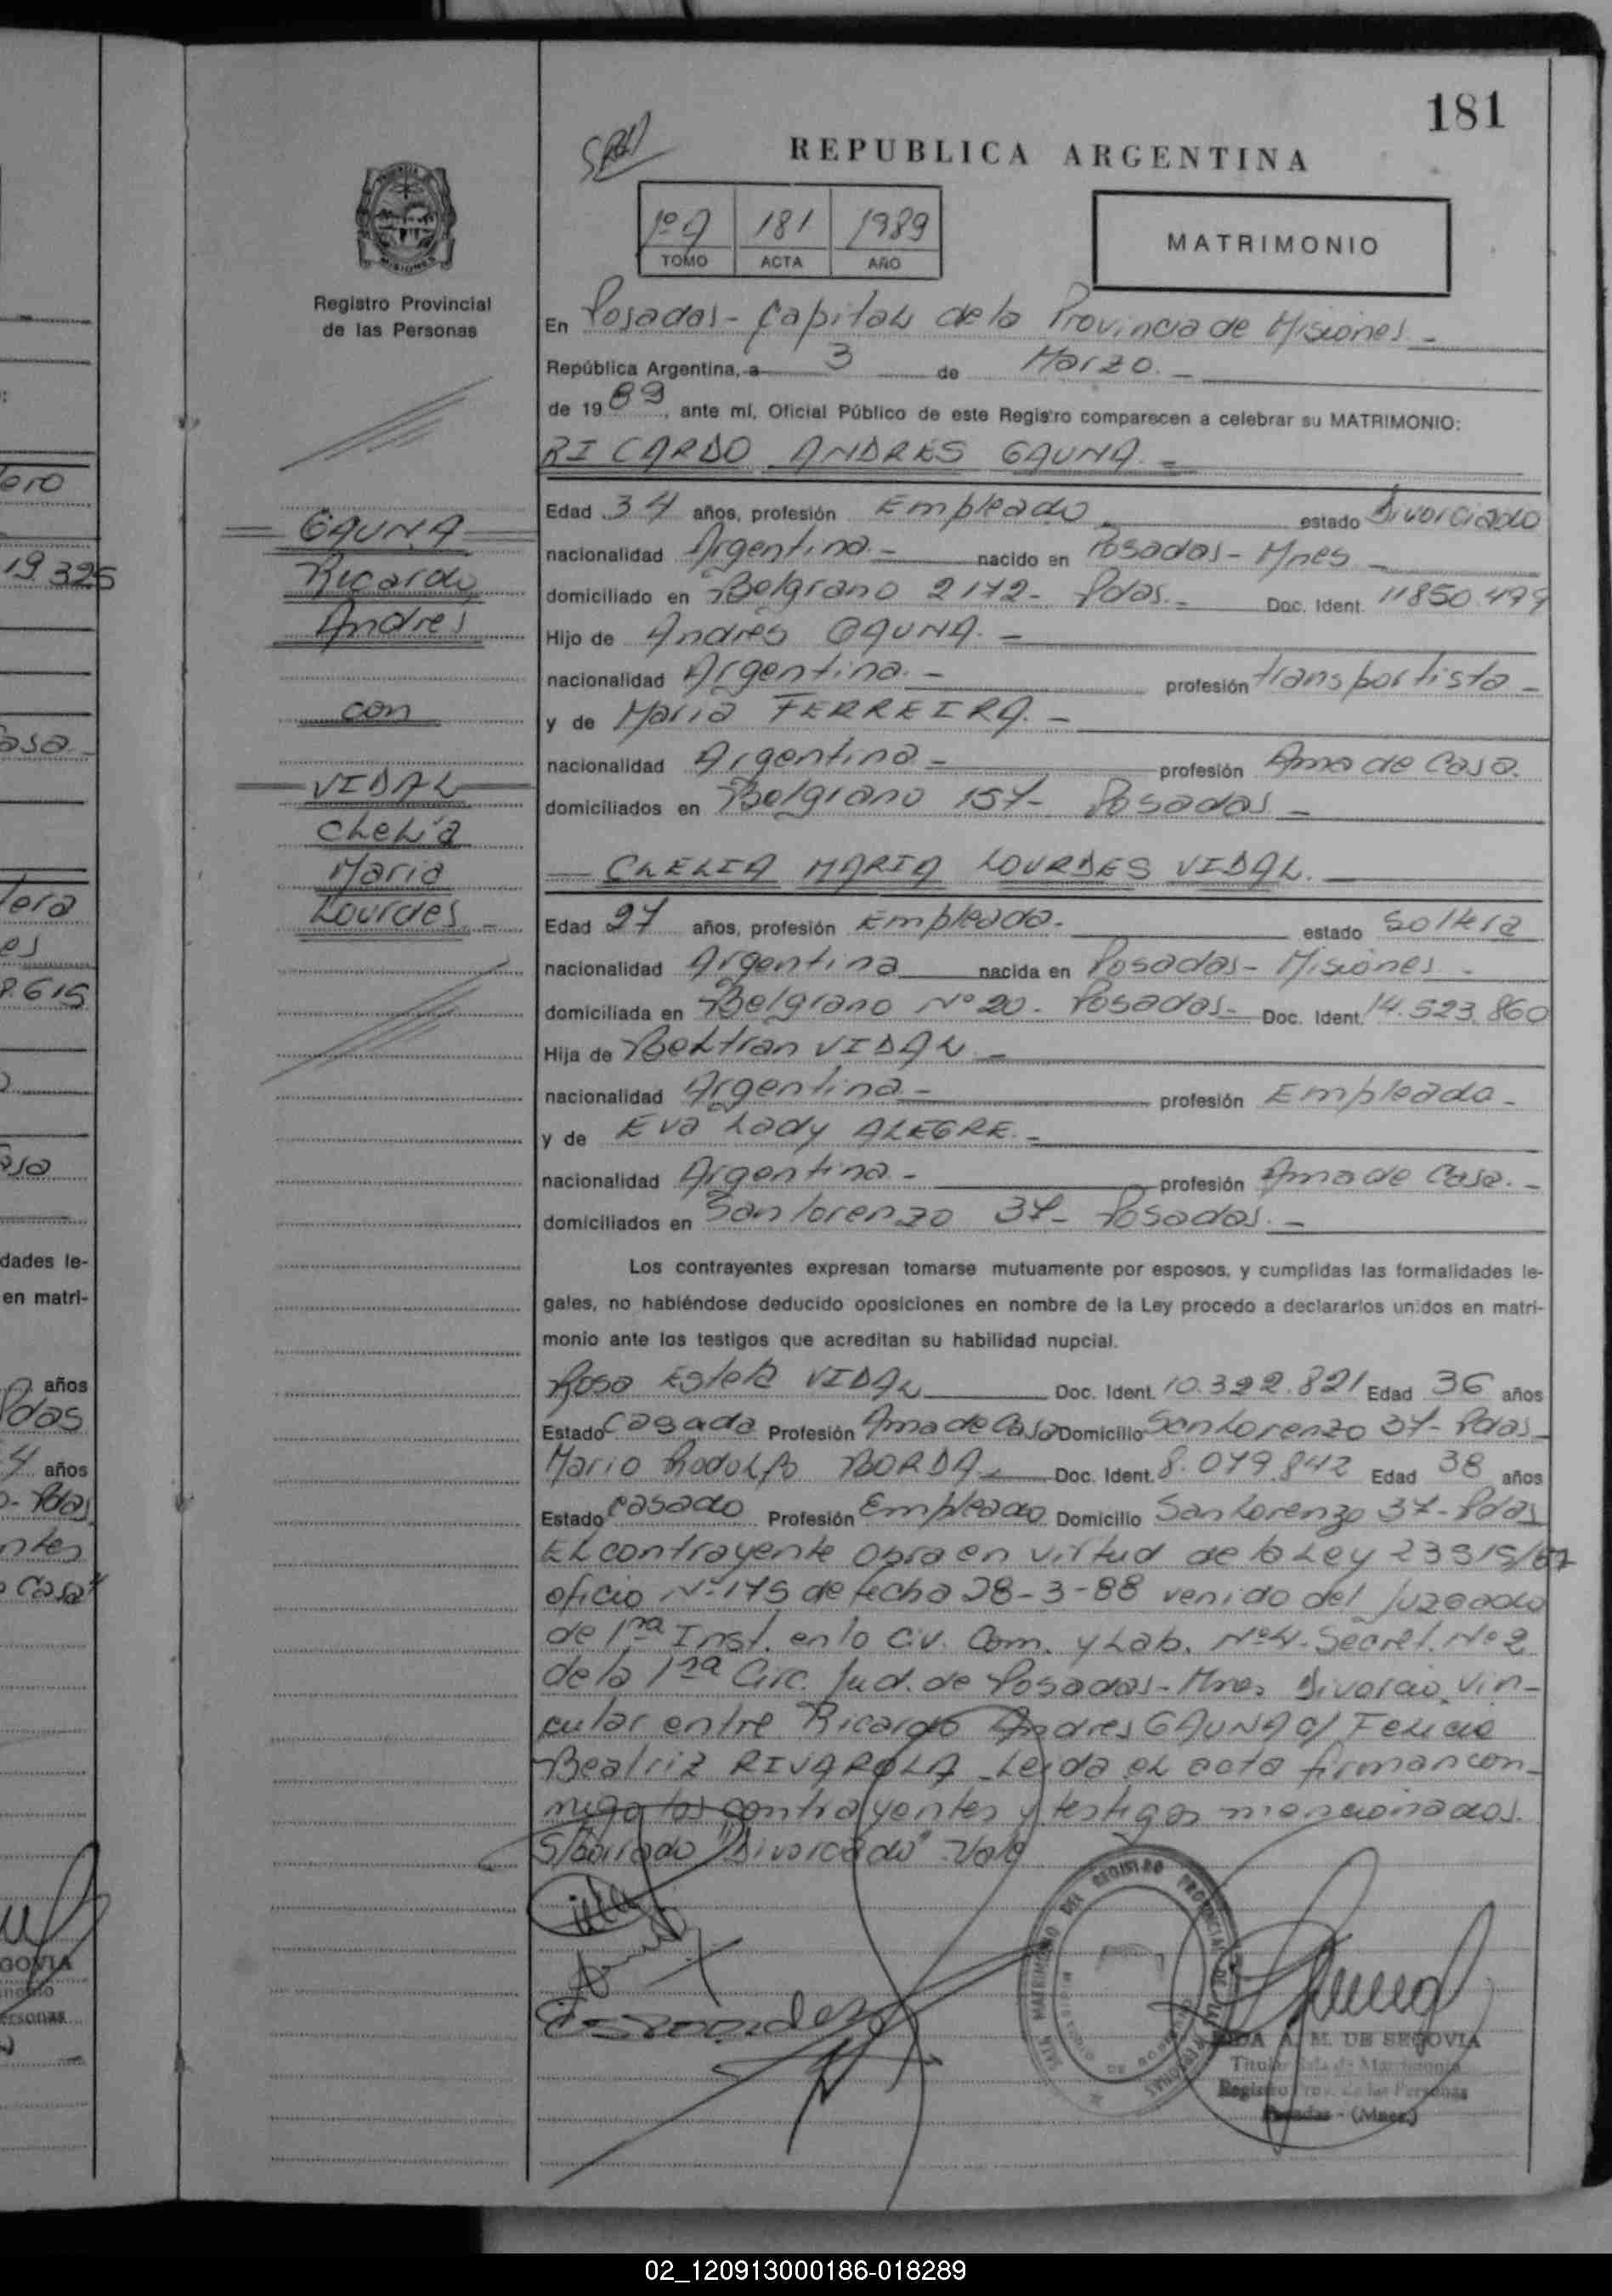 181
REPUBLICA ARGENTINA
1º A 181 1989
TOMO ACTA AÑO
MATRIMONIO
MISIONES
Registro Provincial
de las Personas
En Posadas - Capital de la Provincia de Misiones. -
República Argentina, a 3 de Marzo. -
de 1989, ante mí, Oficial Público de este Registro comparecen a celebrar su MATRIMONIO:
RICARDO ANDRES GAUNA. =
Edad 34 años, profesión Empleado estado Divorciado
nacionalidad Argentina. - nacido en Posadas - Mnes -
domiciliado en Belgrano 2172 - Pdas. - Doc. Ident. 11850.499
Hijo de Andres GAUNA. -
nacionalidad Argentina. - profesión transportista -
y de Maria FERREIRA. -
nacionalidad Argentina - profesión Ama de Casa.
domiciliados en Belgrano 157 - Posadas -
GAUNA
Ricardo
Andres
con
VIDAL
Chelia
Maria
Lourdes -
- CHELIA MARIA LOURDES VIDAL.
Edad 27 años, profesión Empleada. estado soltera
nacionalidad Argentina nacida en Posadas - Misiones -
domiciliada en Belgrano Nº 20 - Posadas - Doc. Ident. 14.523.860
Hija de Beltran VIDAL -
nacionalidad Argentina - profesión Empleado -
y de Eva Lady ALEGRE. -
nacionalidad Argentina - profesión Ama de Casa. -
domiciliados en San lorenzo 37 - Posadas. -
Los contrayentes expresan tomarse mutuamente por esposos, y cumplidas las formalidades le-
gales, no habiéndose deducido oposiciones en nombre de la Ley procedo a declararlos unidos en matri-
monio ante los testigos que acreditan su habilidad nupcial.
Rosa Estela VIDAL Doc. Ident. 10.392.821 Edad 36 años
Estado Casada Profesión Ama de Casa Domicilio San Lorenzo 37 - Pdas
Mario Rodolfo BORDA Doc. Ident. 8.079.842 Edad 38 años
Estado casado Profesión Empleado Domicilio San Lorenzo 37 - Pdas
El contrayente obra en virtud de la Ley 23515/87
oficio Nº 175 de fecha 28-3-88 venido del Juzgado
de 1ra Inst. en lo Civ. Com. y Lab. Nº 4. Secret. Nº 2
de la 1ra Circ. Jud. de Posadas - Mnes Divorcio Vin-
cular entre Ricardo Andres GAUNA c/ Felicia
Beatriz RIVAROLA - Leida el acta firman con-
migo los contrayentes y testigos mencionados.
S/borrado "Divorciado" Vale
A. M. DE SEGOVIA
Titular Sala de Matrimonio
Registro Prov. de las Personas
Posadas - (Mnes.)
ero
19 325
asa -
era
es
8.615
asa
dades le-
en matri-
años
Pdas
4 años
- Pdas
ntes
Casa"
02_120913000186-018289